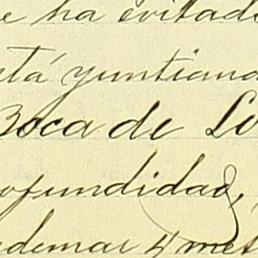 e ha evitado
stá yuntiand
Boca de Lo
ofundidad,
demar 4 met